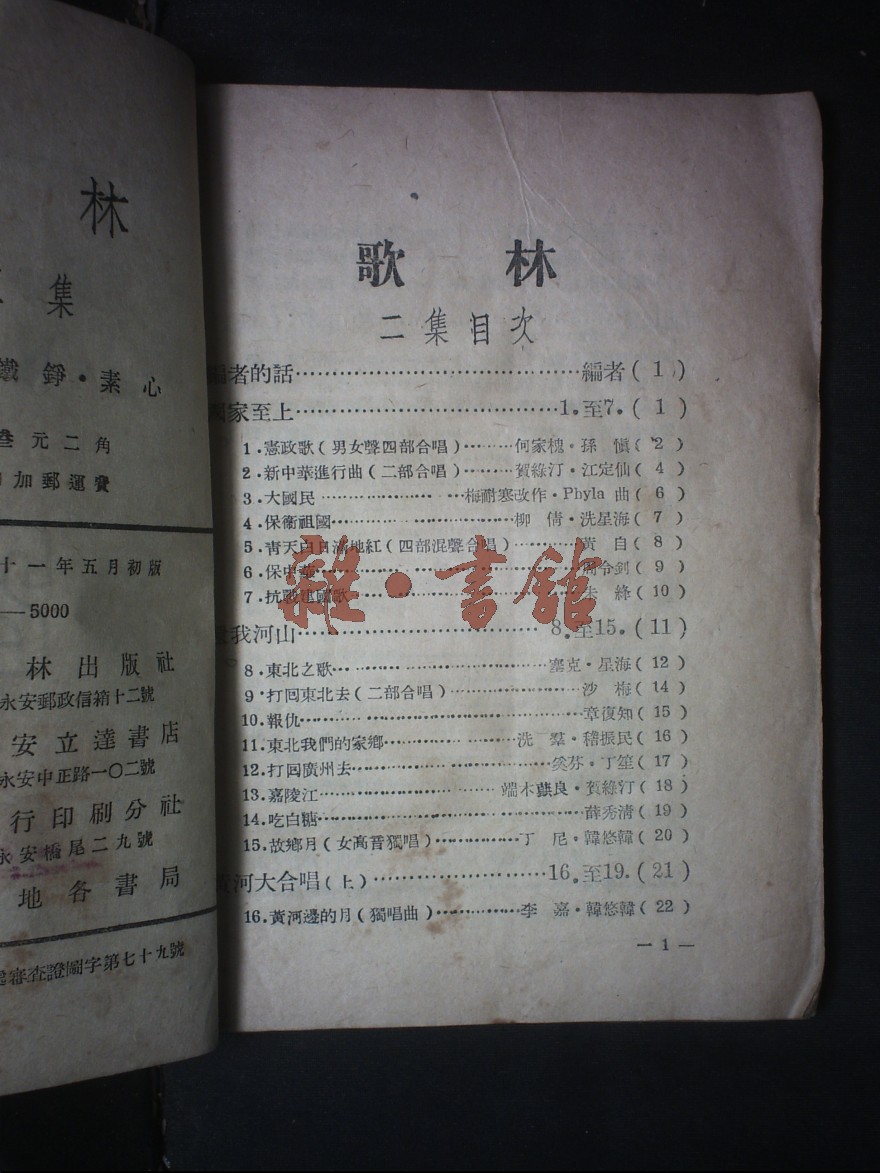 林
集
鐵錚・素心
叁元二角
加郵運費
十一年五月初版
—5000
林出版社
永安郵政信箱十二號
安立達書店
永安中正路一〇二號
行印刷分社
永安橋尾二九號
地各書局
審查證圖字第七十九號
歌 林
二集目次
編者的話……編者(1)
國家至上……1.至7.(1)
1.憲政歌(男女聲四部合唱)……何家槐・孫慎(2)
2.新中華進行曲(二部合唱)……賀綠汀・江定仙(4)
3.大國民……梅耐寒改作・Phyla 曲(6)
4.保衛祖國……柳倩・洗星海(7)
5.青天白日滿地紅(四部混聲合唱)……黃自(8)
6.保中華……周令釗(9)
7.抗戰建國歌……朱絳(10)
我河山……8.至15.(11)
8.東北之歌……塞克・星海(12)
9.打囘東北去(二部合唱)……沙梅(14)
10.報仇……章復知(15)
11.東北我們的家鄉……洗羣・稽振民(16)
12.打囘廣州去……芬・丁笙(17)
13.嘉陵江……端木蕻良・賀綠汀(18)
14.吃白糖……薛秀清(19)
15.故鄉月(女高音獨唱)……丁尼・韓悠韓(20)
黃河大合唱(上)……16.至19.(21)
16.黃河邊的月(獨唱曲)……李嘉・韓悠韓(22)
—1—
雜・書館